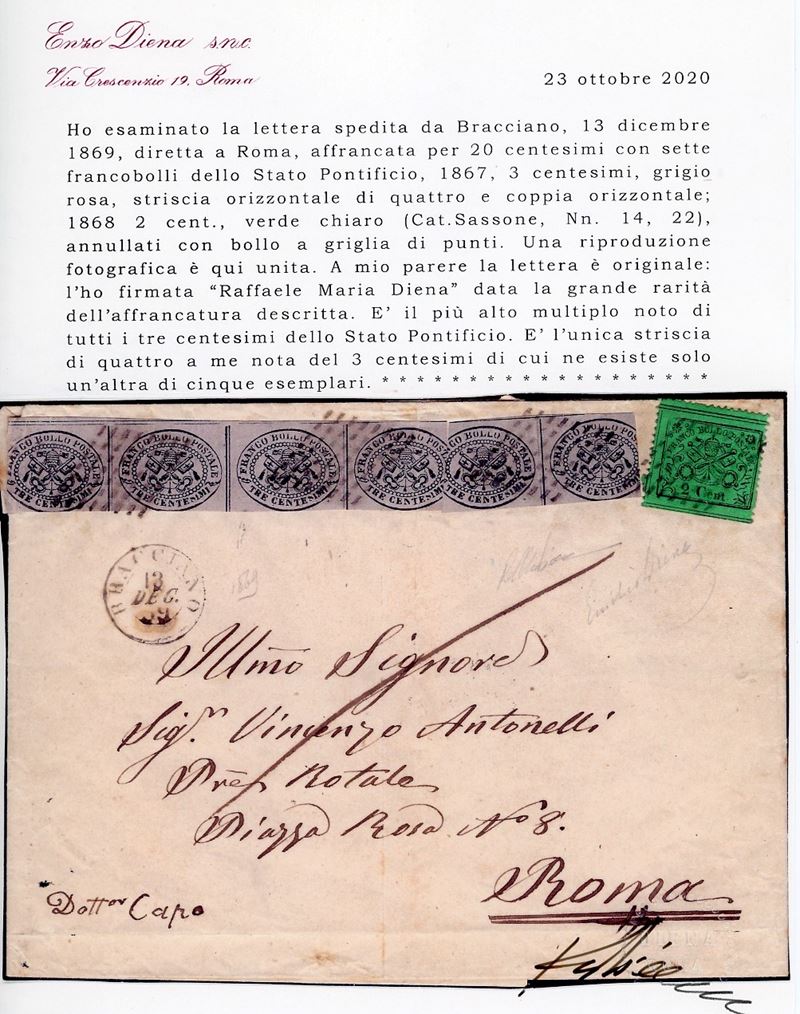 Enzo Diena s.n.c.
Via Crescenzio 19, Roma
23 ottobre 2020
Ho esaminato la lettera spedita da Bracciano, 13 dicembre
1869, diretta a Roma, affrancata per 20 centesimi con sette
francobolli dello Stato Pontificio, 1867, 3 centesimi, grigio
rosa, striscia orizzontale di quattro e coppia orizzontale;
1868 2 cent., verde chiaro (Cat.Sassone, Nn. 14, 22),
annullati con bollo a griglia di punti. Una riproduzione
fotografica è qui unita. A mio parere la lettera è originale:
l'ho firmata “Raffaele Maria Diena” data la grande rarità
dell'affrancatura descritta. E' il più alto multiplo noto di
tutti i tre centesimi dello Stato Pontificio. E' l'unica striscia
di quattro a me nota del 3 centesimi di cui ne esiste solo
un'altra di cinque esemplari. * * * * * * * * * * * * * * * * * * *
FRANCO BOLLO POSTALE TRE CENTESIMI
FRANCO BOLLO POSTALE TRE CENTESIMI
FRANCO BOLLO POSTALE TRE CENTESIMI
FRANCO BOLLO POSTALE TRE CENTESIMI
FRANCO BOLLO POSTALE TRE CENTESIMI
FRANCO BOLLO POSTALE TRE CENTESIMI
FRANCO BOLLO POSTALE
2 Cent
BRACCIANO
13
DEC.
69
1869
Emilio Diena
Illmo Signore
Sig.r Vincenzo Antonelli
Pre Rotale
Piazza Rosa No 8.
Roma
Dottor Capo